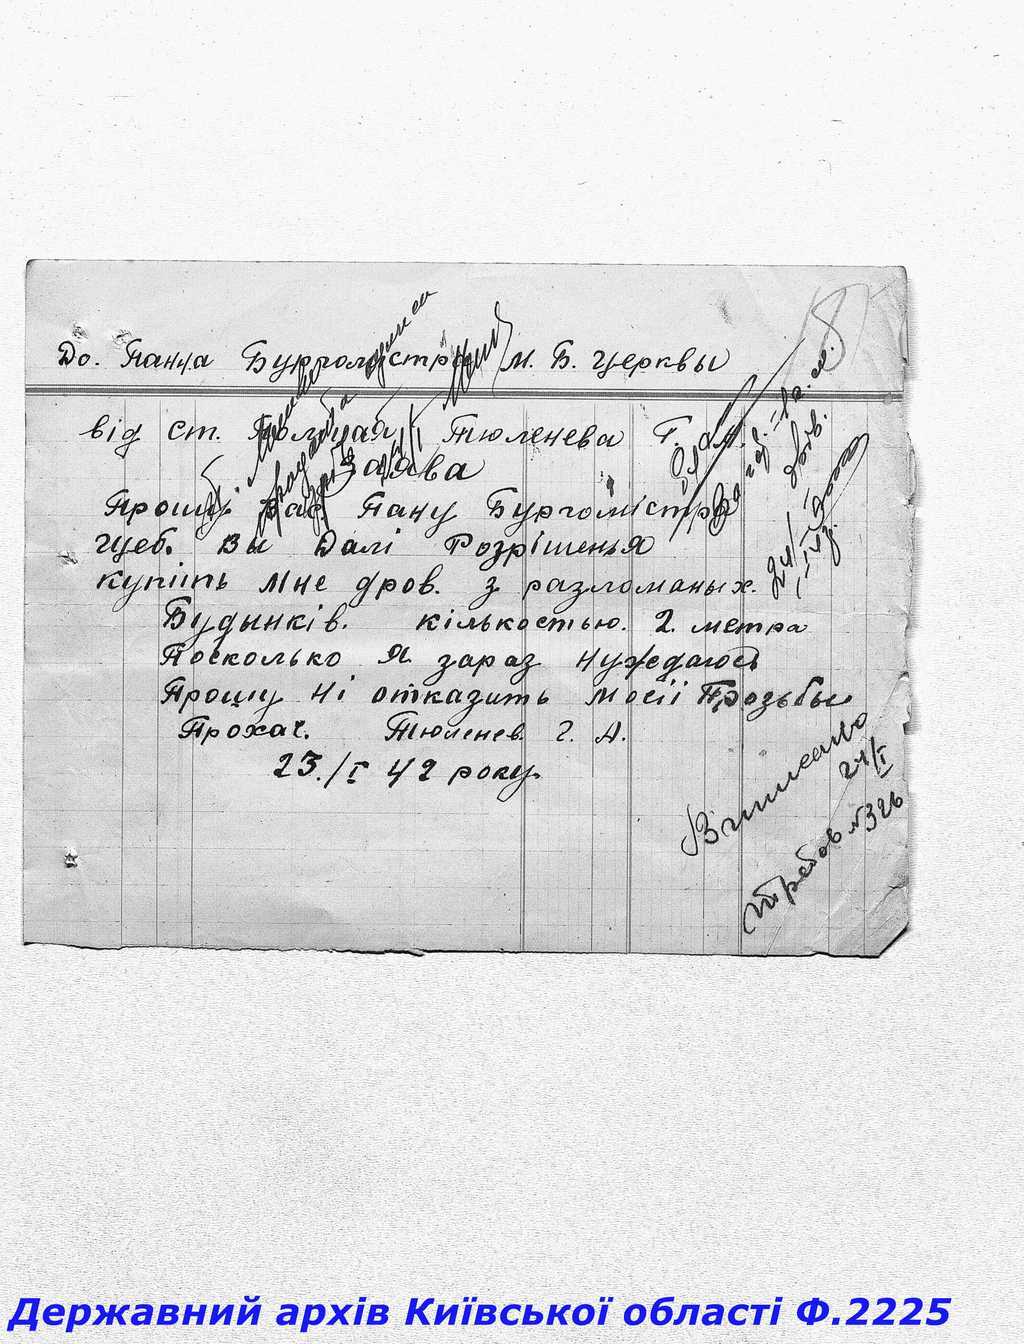 До. Пануа Бургомістра м. Б. Церквы
від ст. Поліцая Тюленева Г.
Заава
Прошу Вас Пану Бургомістра
щеб. вы Далі Розрішенья
купіть мне дров. з разломаных.
Будынків. кількостью. 2. метра
Посколько Я зараз нуждаюсь
Прошу ні отказить моєіі Прозьбы
Прохач. Тюленев. Г. А.
23./I 42 року.
8
24/I
Виписано
24/I
требов №326
Державний архів Київської області Ф.2225